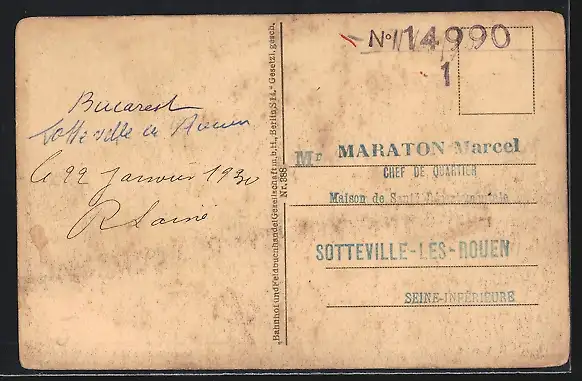 Bucarest
Sotteville les Rouen
le 22 Janvier 1930
R Lainé
"Bahnhof und Feldbuchhandel Gesellschaft m. b. H., Berlin S 14." Gesetzl. gesch.
Nr. 388
№ 14990
1
Mr MARATON Marcel
CHEF DE QUARTIER
Maison de Santé Départementale
SOTTEVILLE-LES-ROUEN
SEINE-INFÉRIEURE